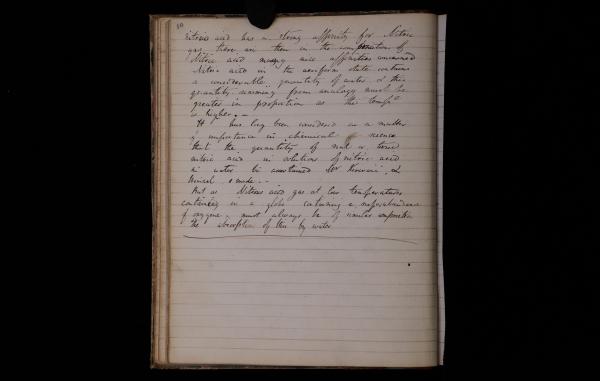 nitric acid has a strong affinity for Nitric
gas, there are then in the composition of
Nitric acid many nice affinities concerned
Nitric acid in the aeriform state contains
a considerable quantity of water & this
quantity reasoning from analogy must be
greater in proportion as the temp
is higher. —
It has long been considered as a matter
of importance in chemical science
that the quantity of real or true
nitric acid in solutions of nitric acid
in water be ascertained Mr Kirwan &
made. —
But as Nitrous acid gas at low temperatures
contained in a globe containing a superabundance
of oxygene, must always be of similar composition
the absorption of this by water